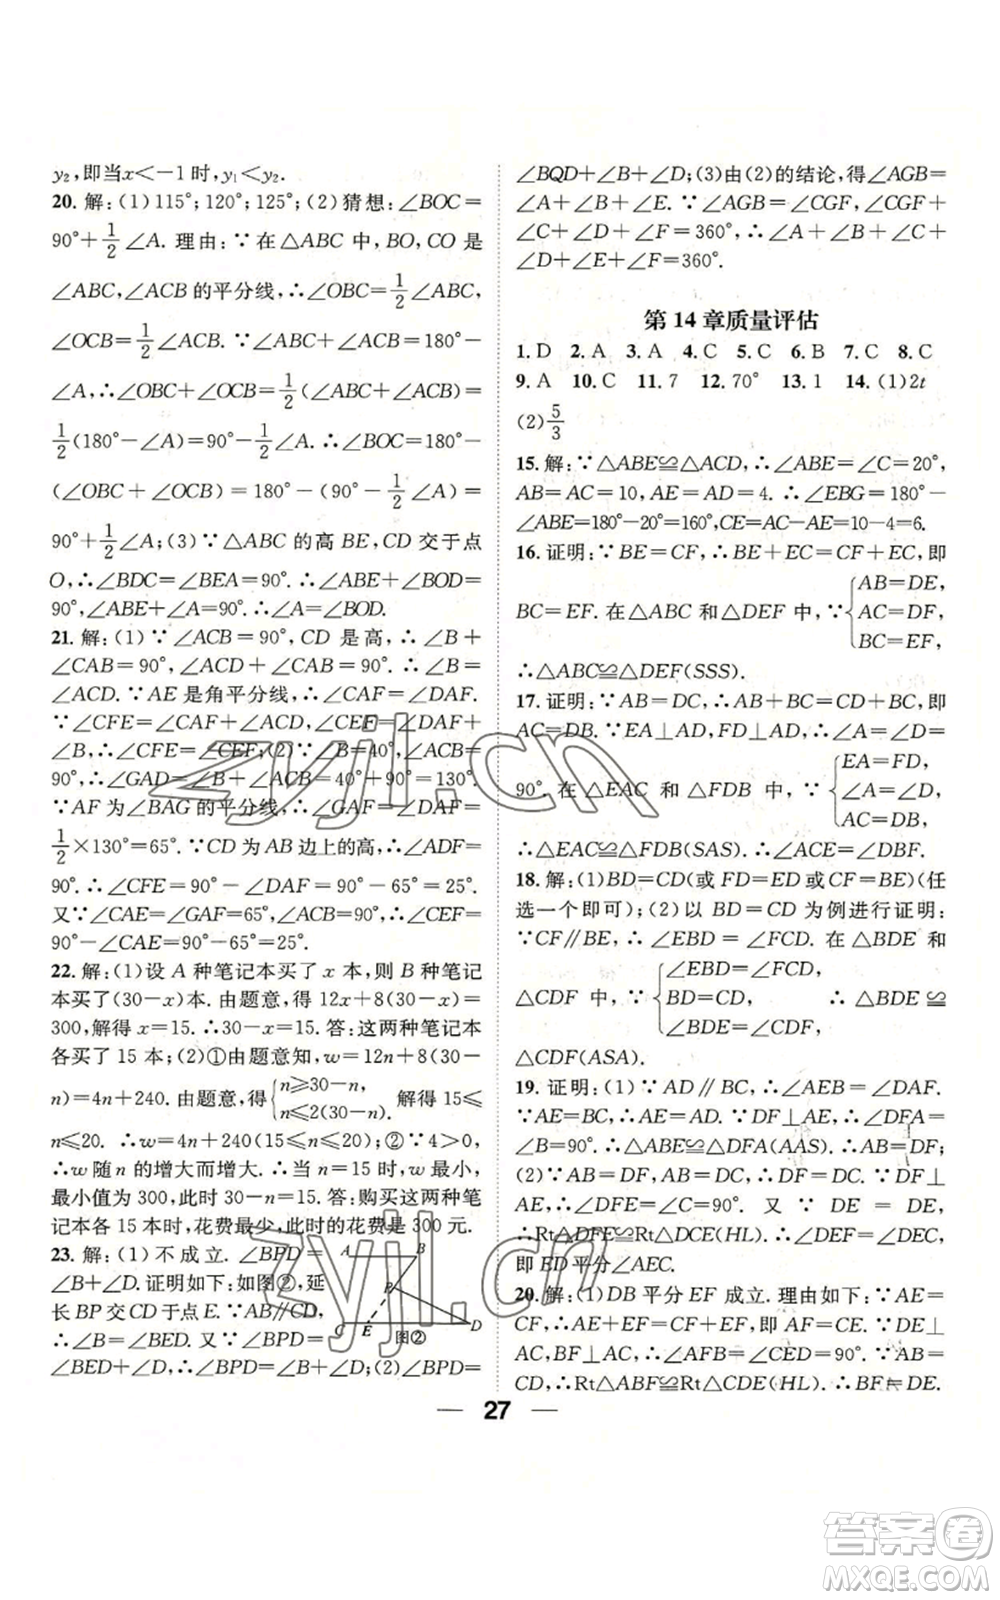 y₂,即当x＜－1时,y₁＜y₂.
20. 解:(1)115°;120°;125°;(2)猜想:∠BOC=
90°+1/2∠A. 理由:∵在△ABC中,BO,CO是
∠ABC,∠ACB的平分线,∴∠OBC=1/2∠ABC,
∠OCB=1/2∠ACB.∵∠ABC+∠ACB=180°-
∠A,∴∠OBC+∠OCB=1/2(∠ABC+∠ACB)=
1/2(180°-∠A)=90°-1/2∠A.∴∠BOC=180°-
(∠OBC+∠OCB)=180°-(90°-1/2∠A)=
90°+1/2∠A;(3)∵△ABC的高BE,CD交于点
O,∴∠BDC=∠BEA=90°.∴∠ABE+∠BOD=
90°,∠ABE+∠A=90°.∴∠A=∠BOD.
21. 解:(1)∵∠ACB=90°,CD是高,∴∠B+
∠CAB=90°,∠ACD+∠CAB=90°.∴∠B=
∠ACD.∵AE是角平分线,∴∠CAF=∠DAF.
∵∠CFE=∠CAF+∠ACD,∠CEF=∠DAF+
∠B,∴∠CFE=∠CEF;(2)∵∠B=40°,∠ACB=
90°,∴∠GAD=∠B+∠ACB=40°+90°=130°.
∵AF为∠BAG的平分线,∴∠GAF=∠DAF=
1/2×130°=65°.∵CD为AB边上的高,∴∠ADF=
90°.∴∠CFE=90°-∠DAF=90°-65°=25°.
又∵∠CAE=∠GAF=65°,∠ACB=90°,∴∠CEF=
90°-∠CAE=90°-65°=25°.
22. 解:(1)设A种笔记本买了x本,则B种笔记
本买了(30-x)本. 由题意,得12x+8(30-x)=
300,解得x=15.∴30-x=15.答:这两种笔记本
各买了15本;(2)①由题意知,w=12n+8(30-
n)=4n+240. 由题意,得{n≥30-n, n≤2(30-n). 解得15≤
n≤20.∴w=4n+240(15≤n≤20);②∵4>0,
∴w随n的增大而增大.∴当n=15时,w最小,
最小值为300,此时30-n=15.答:购买这两种笔
记本各15本时,花费最少,此时的花费是300元.
23. 解:(1)不成立. ∠BPD=
∠B+∠D.证明如下:如图②,延
长BP交CD于点E.∵AB∥CD,
∴∠B=∠BED. 又∵∠BPD=
∠BED+∠D,∴∠BPD=∠B+∠D;(2)∠BPD=
A
B
P
C
E
D
图②
∠BQD+∠B+∠D;(3)由(2)的结论,得∠AGB=
∠A+∠B+∠E.∵∠AGB=∠CGF,∠CGF+
∠C+∠D+∠F=360°,∴∠A+∠B+∠C+
∠D+∠E+∠F=360°.
第14章质量评估
1. D 2. A 3. A 4. C 5. C 6. B 7. C 8. C
9. A 10. C 11. 7 12. 70° 13. 1 14. (1)2t
(2)5/3
15. 解:∵△ABE≌△ACD,∴∠ABE=∠C=20°,
AB=AC=10,AE=AD=4.∴∠EBG=180°-
∠ABE=180°-20°=160°,CE=AC-AE=10-4=6.
16. 证明:∵BE=CF,∴BE+EC=CF+EC,即
BC=EF.在△ABC和△DEF中,∵{AB=DE, AC=DF, BC=EF,
∴△ABC≌△DEF(SSS).
17. 证明:∵AB=DC,∴AB+BC=CD+BC,即
AC=DB.∵EA⊥AD,FD⊥AD,∴∠A=∠D=
90°.在△EAC和△FDB中,∵{EA=FD, ∠A=∠D, AC=DB,
∴△EAC≌△FDB(SAS).∴∠ACE=∠DBF.
18. 解:(1)BD=CD(或FD=ED或CF=BE)(任
选一个即可);(2)以BD=CD为例进行证明:
∵CF∥BE,∴∠EBD=∠FCD.在△BDE和
△CDF中,∵{∠EBD=∠FCD, BD=CD, ∠BDE=∠CDF, ∴△BDE≌
△CDF(ASA).
19. 证明:(1)∵AD∥BC,∴∠AEB=∠DAF.
∵AE=BC,∴AE=AD.∵DF⊥AE,∴∠DFA=
∠B=90°.∴△ABE≌△DFA(AAS).∴AB=DF;
(2)∵AB=DF,AB=DC,∴DF=DC.∵DF⊥
AE,∴∠DFE=∠C=90°. 又∵DE=DE,
∴Rt△DFE≌Rt△DCE(HL).∴∠DEF=∠DEC,
即ED平分∠AEC.
20. 解:(1)DB平分EF成立. 理由如下:∵AE=
CF,∴AE+EF=CF+EF,即AF=CE.∵DE⊥
AC,BF⊥AC,∴∠AFB=∠CED=90°.∵AB=
CD,∴Rt△ABF≌Rt△CDE(HL).∴BF=DE.
— 27 —
zyjl.cn
zyjl.cn
答案圈
MXQE.COM